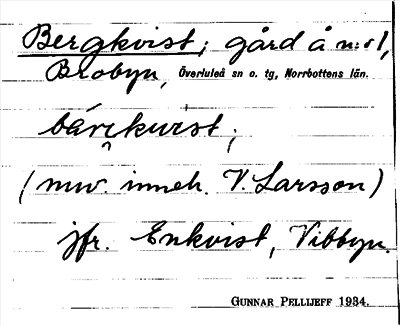 Bergkvist; gård å nr 1,
Brobyn, Överluleå sn o. tg, Norrbottens län.
bárckvist;
(nuv. inneh. V. Larsson)
jfr. Enkvist, Vibbyn.
GUNNAR PELLIJEFF 1934.